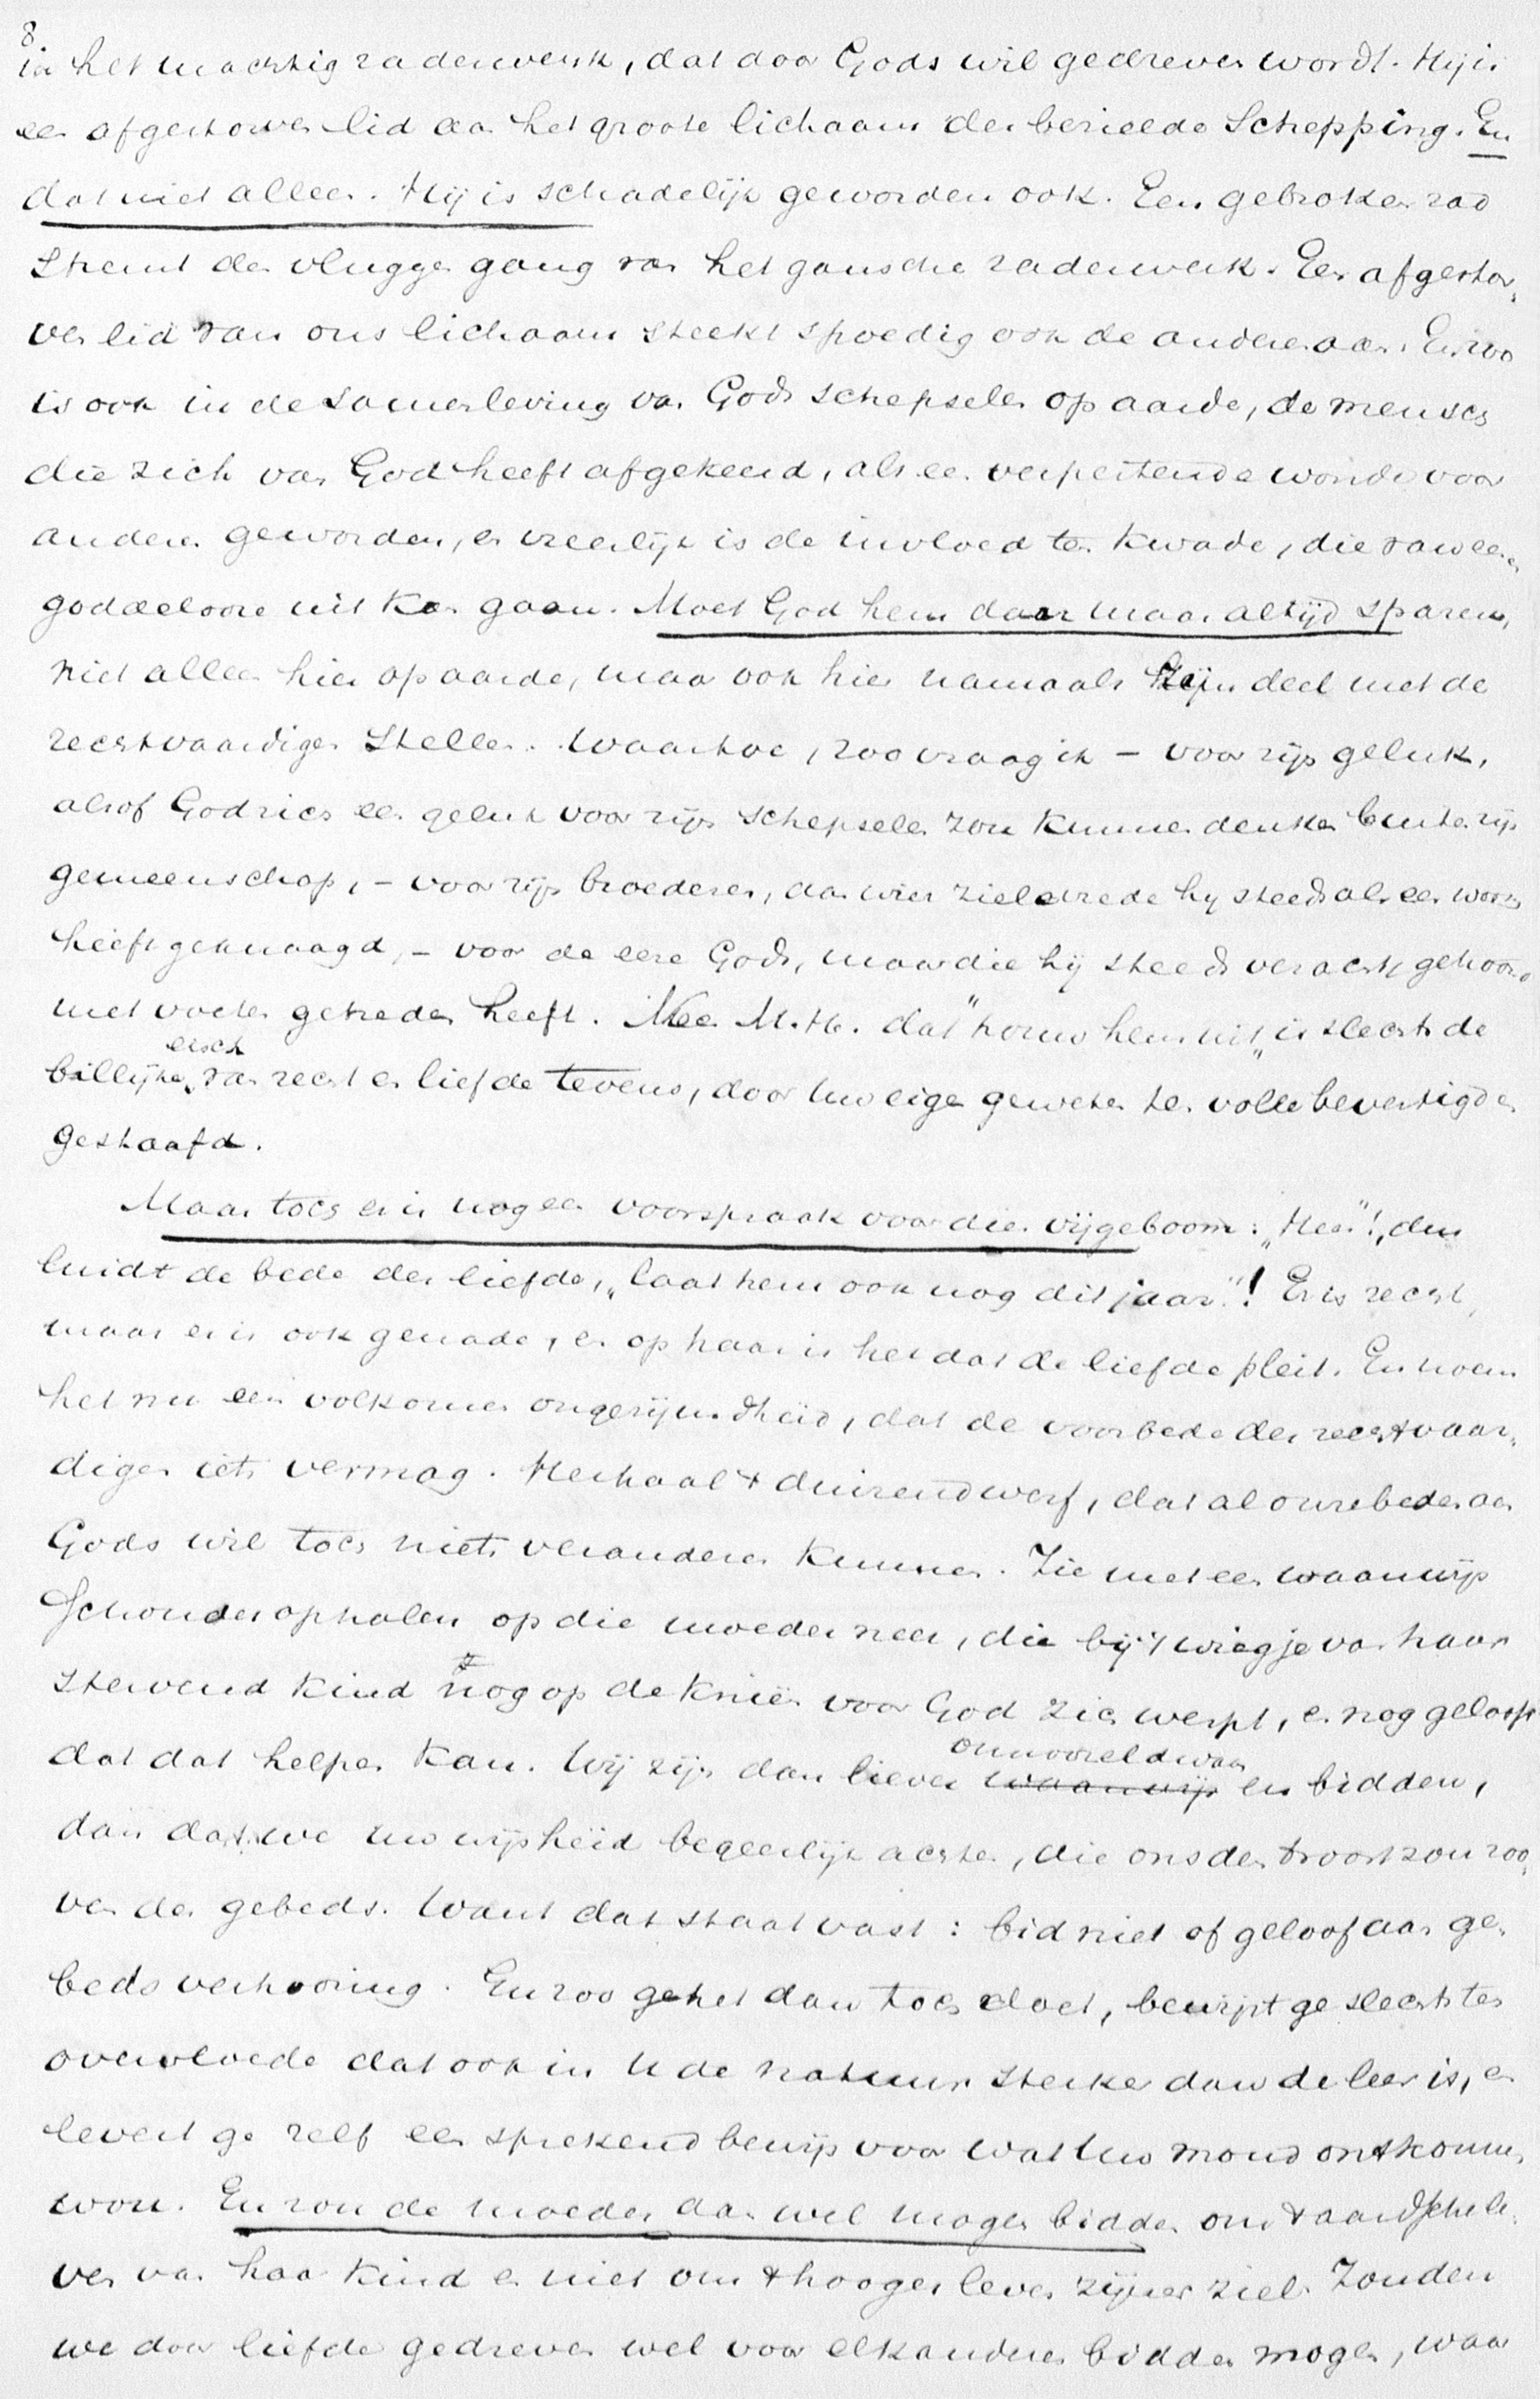 8
in het machtig raderwerk, dat door Gods wil gedreven wordt. Hij is
een afgestorven lid aan het groote lichaam der bezielde Schepping. En
dat niet alleen. Hij is schadelijk geworden ook. Een gebroken rad
stremt den vluggen gang van het gansche raderwerk. Een afgestor„
ven lid van ons lichaam steekt spoedig ook de andere aan. En zoo
is ook in de samenleving van Gods schepselen op aarde, de mensch
die zich van God heeft afgekeerd, als een verpestende wonde voor
anderen geworden, en vreeslijk is de invloed ten kwade, die van een
goddelooze uit kan gaan. Moet God hem daar maar altijd sparen,
niet alleen hier op aarde, maar ook hier namaals zijn deel met de
rechtvaardigen stellen. Waartoe, zoo vraag ik – voor zijn geluk,
alsof God zich een geluk voor zijn schepselen zou kunnen denken buiten zijn
gemeenschap, – voor zijn broederen, aan wier zielevrede hij steeds als een worm
heeft geknaagd, – voor de eere Gods, maar die hij steeds veracht gehoond
met voeten getreden heeft. Nee M.H. dat "houw hem uit" is slechts de
billijke eisch van recht en liefde tevens, door uw eigen geweten ten volle bevestigd en
gestaafd.
Maar toch er is nog een voorspraak voor dien vijgeboom: „Heer"!, dus
luidt de bede der liefde, „laat hem ook nog dit jaar."! Er is recht,
maar er is ook genade, en op haar is het dat de liefde pleit. En noem
het nu een volkomen ongerijmdheid, dat de voorbede des rechtvaar„
digen iets vermag. Herhaal 't duizendwerf, dat al onze beden aan
Gods wil toch niets veranderen kunnen. Zie met een waanwijs
Schouderophalen op die moeder neer, die bij 't wiegje van haar
stervend kind nog op de knieën voor God zich werpt, en nog gelooft
dat dat helpen kan. Wij zijn dan liever onnoozel dwaas en bidden,
dan dat we uw wijsheid begeerlijk achten, die ons den troost zou roo„
ven des gebeds. Want dat staat vast: bid niet of geloof aan ge„
bedsverhooring. En zoo ge het dan toch doet, bewijst ge slechts ten
overvloede dat ook in U de natuur sterker dan de leer is, en
levert ge zelf een sprekend bewijs voor wat uw mond ontkennen
wou. En zou de moeder dan wel mogen bidden om 't aardsche le„
ven van haar kind en niet om 't hooger leven zijner ziel. Zouden
we door liefde gedreven wel voor elkander bidden mogen, waar